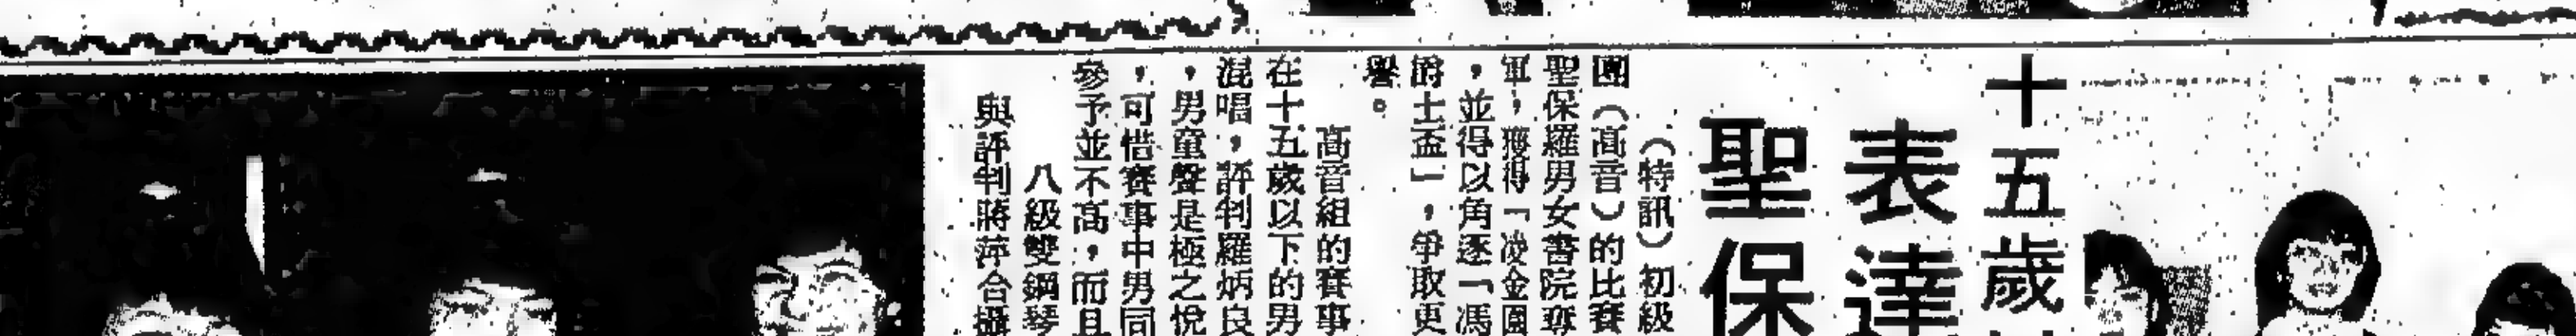 十五歲
表達
聖保
（特訊）初級
團（高音）的比賽
聖保羅男女書院奪
軍，獲得「凌金園
，並得以角逐「馮
爵士盃」，爭取更
譽。
高音組的賽事
在十五歲以下的男
混唱，評判羅炳良
，男童聲是極之悅
，可惜賽事中男同
參予並不高，而且
八級雙鋼琴
與評判蔣萍合攝